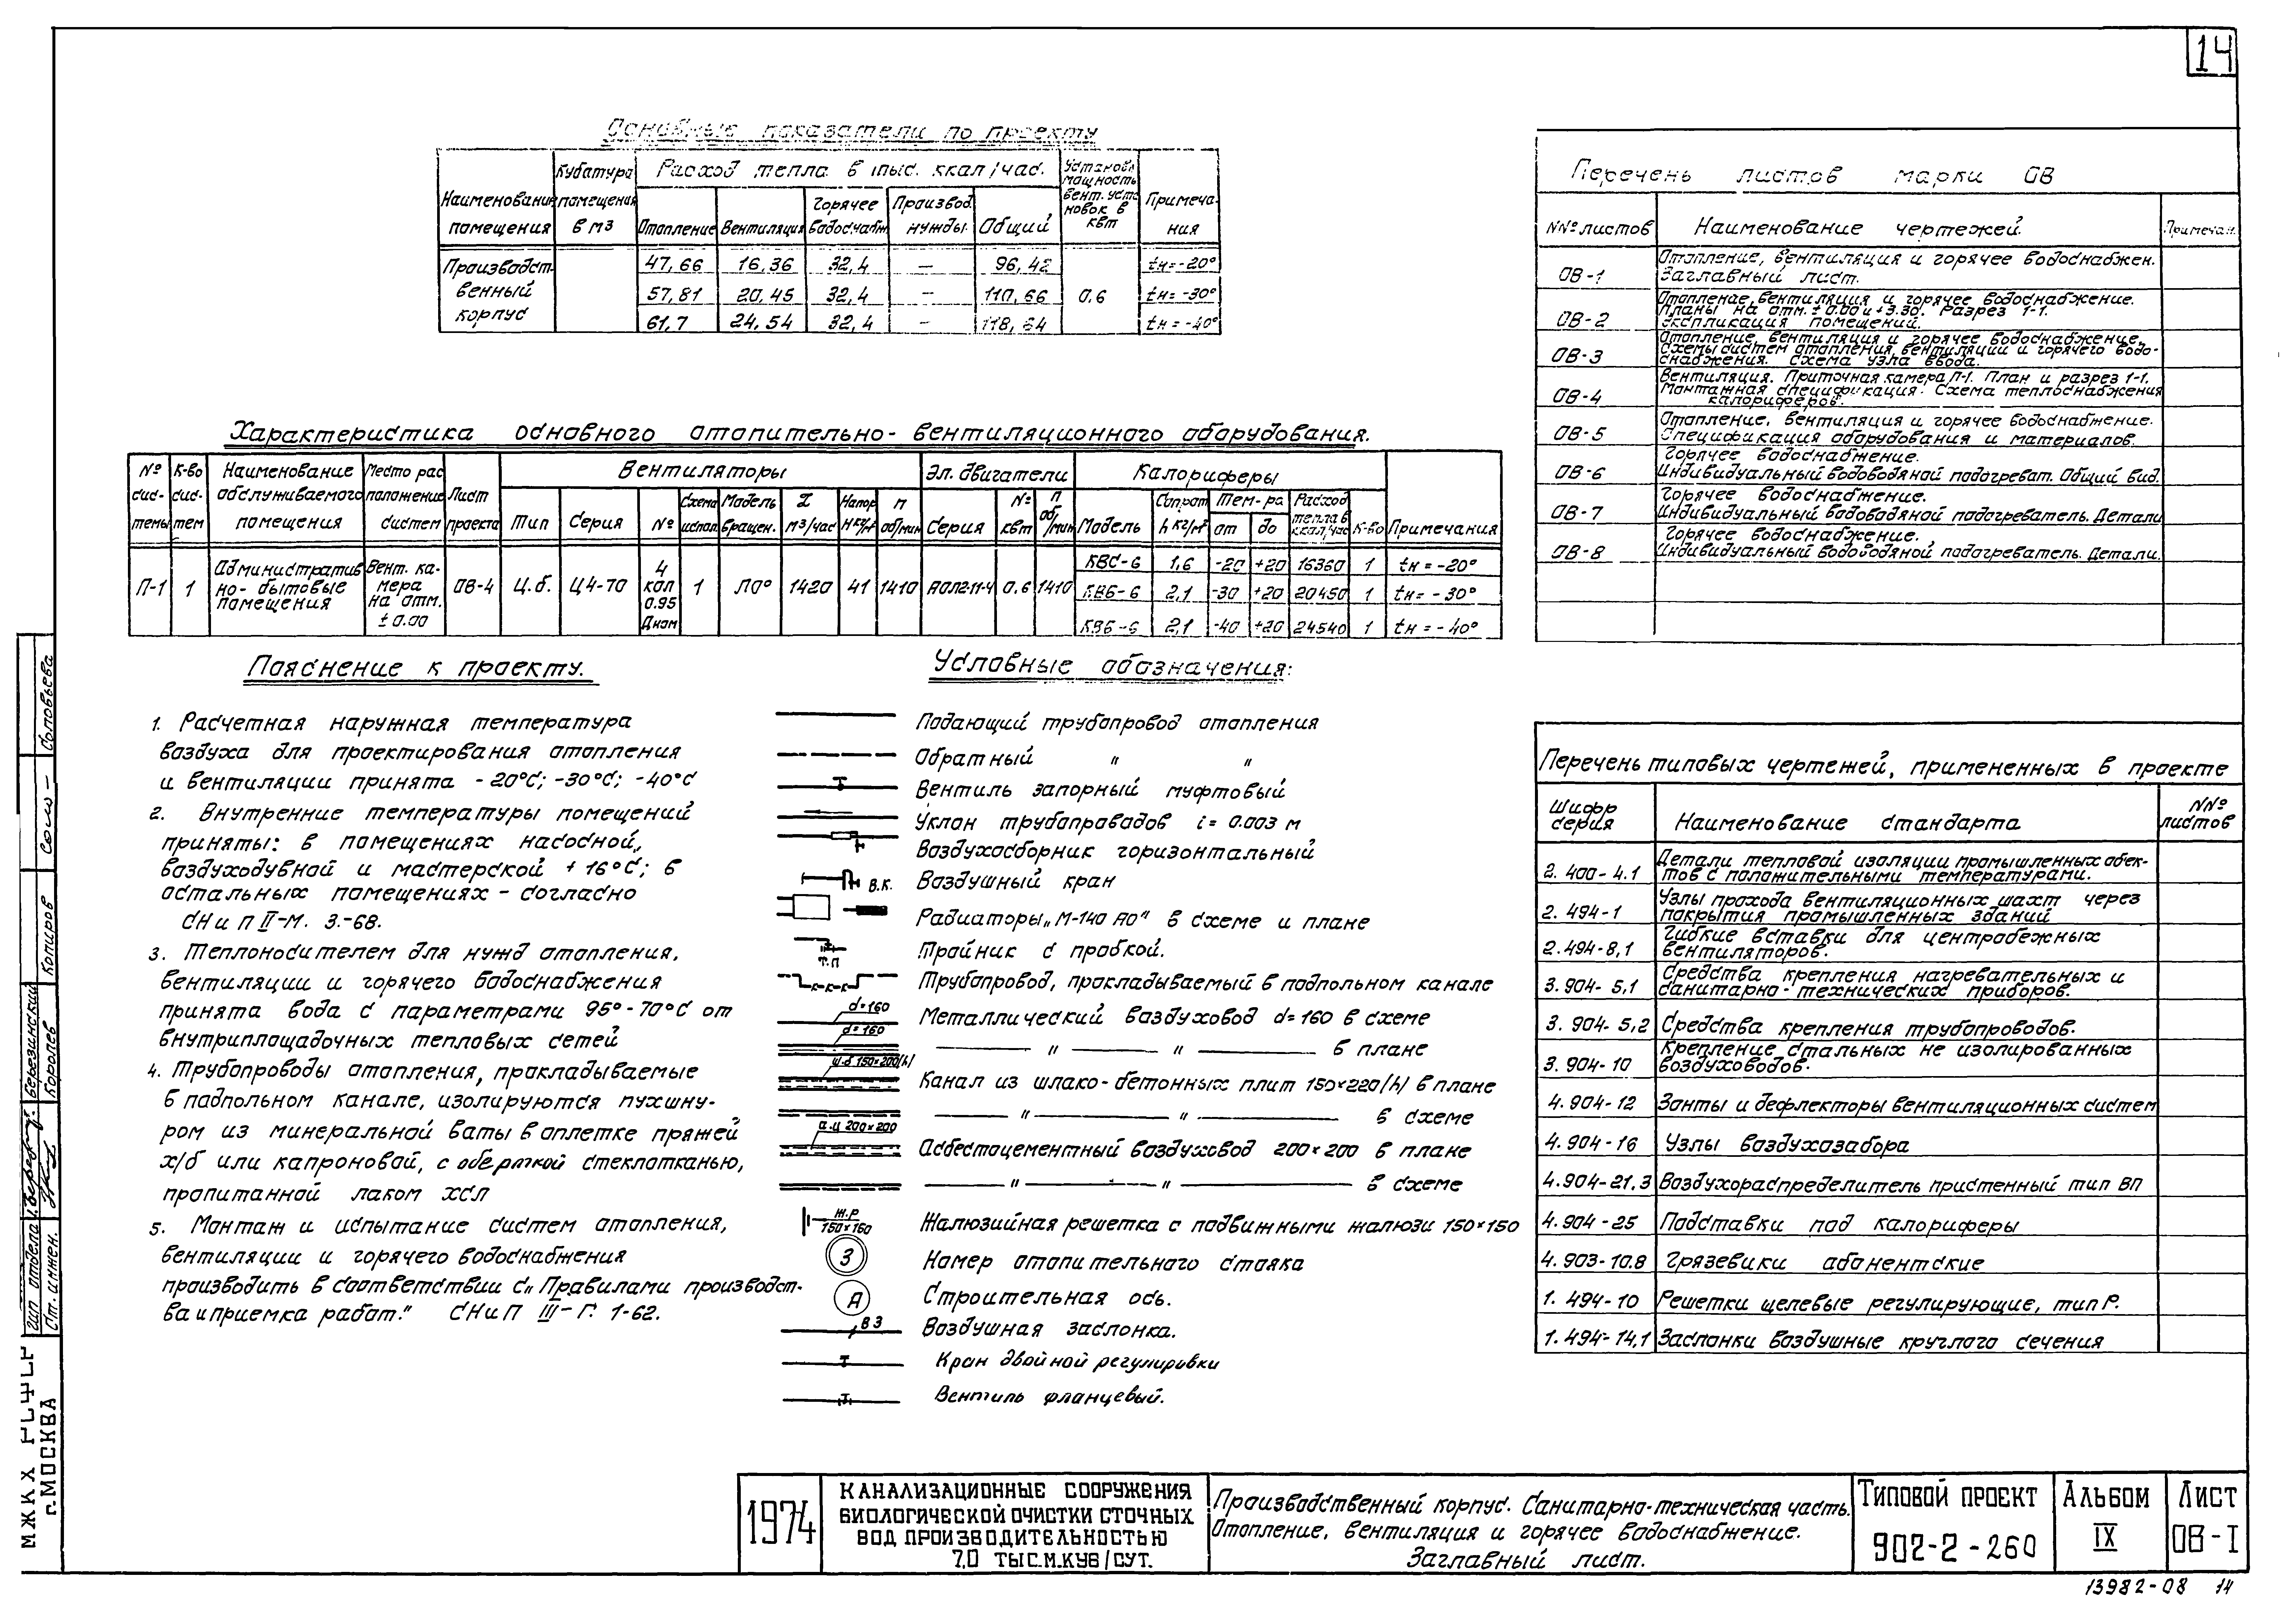 14
Основные показатели по проекту
Наименование помещения
Кубатура помещения в м3
Расход тепла в тыс. ккал/час.
Отопление
Вентиляция
Горячее водоснабж.
Производ. нужды.
Общий
Установ. мощность вент. установок в квт
Примечания
Производственный корпус
47,66 16,36 32,4 — 96,42 tн=-20°
57,81 20,45 32,4 — 110,66 0.6 tн=-30°
61,7 24,54 32,4 — 118,64 tн=-40°
Характеристика основного отопительно-вентиляционного оборудования.
№ системы
К-во систем
Наименование обслуживаемого помещения
Место расположение систем
Лист проекта
Вентиляторы
Тип
Серия
№
Схема испол.
Модель вращен.
L м3/час
Напор Н кг/м²
n об/мин
Эл. двигатели
Серия
№ квт
n об/мин
Калориферы
Модель
Сопрот. h кг/м²
Тем-ра
от
до
Расход тепла в ккал/час
К-во
Примечания
П-1 1 Административно-бытовые помещения Вент. камера на отм. ±0.00 ОВ-4 Ц.б. Ц4-70 4 кол 0.95 Дном 1 Л0° 1420 41 1410 АОЛ2-11-4 0.6 1410
КВС-6 1,6 -20 +20 16360 1 tн=-20°
КВБ-6 2,1 -30 +20 20450 1 tн=-30°
КВБ-6 2,1 -40 +20 24540 1 tн=-40°
Пояснение к проекту.
1. Расчетная наружная температура
воздуха для проектирования отопления
и вентиляции принята -20°С; -30°С; -40°С
2. Внутренние температуры помещений
приняты: в помещениях насосной,
воздуходувной и мастерской +16°С; в
остальных помещениях - согласно
СНиП II-М. 3.-68.
3. Теплоносителем для нужд отопления,
вентиляции и горячего водоснабжения
принята вода с параметрами 95°-70°С от
внутриплощадочных тепловых сетей
4. Трубопроводы отопления, прокладываемые
в подпольном канале, изолируются пухшну-
ром из минеральной ваты в оплетке пряжей
х/б или капроновой, с оберткой стеклотканью,
пропитанной лаком ХСЛ
5. Монтаж и испытание систем отопления,
вентиляции и горячего водоснабжения
производить в соответствии с „Правилами производст-
ва и приемка работ." СНиП III-Г. 1-62.
Условные обозначения:
Подающий трубопровод отопления
Обратный " "
Вентиль запорный муфтовый
Уклон трубопроводов i=0.003 м
Воздухосборник горизонтальный
В.К. Воздушный кран
Радиаторы „М-140 АО" в схеме и плане
Т.П Тройник с пробкой.
-к-к-к- Трубопровод, прокладываемый в подпольном канале
d=160 Металлический воздуховод d=160 в схеме
d=160 — " — " — в плане
ш-б 150×200(h) Канал из шлако-бетонных плит 150×220(h) в плане
— " — " — в схеме
а.ц 200×200 Асбестоцементный воздуховод 200×200 в плане
— " — " — в схеме
Ж.Р 150×160 Жалюзийная решетка с подвижными жалюзи 150×150
3 Номер отопительного стояка
А Строительная ось.
ВЗ Воздушная заслонка.
Кран двойной регулировки
Вентиль фланцевый.
Перечень листов марки ОВ
№№ листов Наименование чертежей. Примечан.
ОВ-1 Отопление, вентиляция и горячее водоснабжен.
Заглавный лист.
ОВ-2 Отопление, вентиляция и горячее водоснабжение.
Планы на отм. ±0.00 и +3.30. Разрез 1-1.
Экспликация помещений.
ОВ-3 Отопление, вентиляция и горячее водоснабжение.
Схемы систем отопления, вентиляции и горячего водо-
снабжения. Схема узла ввода.
ОВ-4 Вентиляция. Приточная камера П-1. План и разрез 1-1.
Монтажная спецификация. Схема теплоснабжения
калориферов.
ОВ-5 Отопление, вентиляция и горячее водоснабжение.
Спецификация оборудования и материалов.
ОВ-6 Горячее водоснабжение.
Индивидуальный водоводяной подогреват. Общий вид.
ОВ-7 Горячее водоснабжение.
Индивидуальный водоводяной подогреватель. Детали
ОВ-8 Горячее водоснабжение.
Индивидуальный водоводяной подогреватель. Детали.
Перечень типовых чертежей, примененных в проекте
Шифр серия Наименование стандарта №№ листов
2.400-4.1 Детали тепловой изоляции промышленных обек-
тов с положительными температурами.
2.494-1 Узлы прохода вентиляционных шахт через
покрытия промышленных зданий
2.494-8,1 Гибкие вставки для центробежных
вентиляторов.
3.904-5,1 Средства крепления нагревательных и
санитарно-технических приборов.
3.904-5,2 Средства крепления трубопроводов.
3.904-10 Крепление стальных не изолированных
воздуховодов.
4.904-12 Зонты и дефлекторы вентиляционных систем
4.904-16 Узлы воздухозабора
4.904-21.3 Воздухораспределитель пристенный тип ВП
4.904-25 Подставки под калориферы
4.903-10.8 Грязевики абонентские
1.494-10 Решетки щелевые регулирующие, тип Р.
1.494-14,1 Заслонки воздушные круглого сечения
Соловьева
Копиров
Березинский
Королев
Гип отдела
Ст. инжен.
МЖКХ РСФСР
г. МОСКВА
1974
КАНАЛИЗАЦИОННЫЕ СООРУЖЕНИЯ
БИОЛОГИЧЕСКОЙ ОЧИСТКИ СТОЧНЫХ
ВОД ПРОИЗВОДИТЕЛЬНОСТЬЮ
7,0 ТЫС.М.КУБ/СУТ.
Производственный корпус. Санитарно-техническая часть.
Отопление, вентиляция и горячее водоснабжение.
Заглавный лист.
ТИПОВОЙ ПРОЕКТ
902-2-260
АЛЬБОМ
IX
ЛИСТ
ОВ-I
13982-08 14